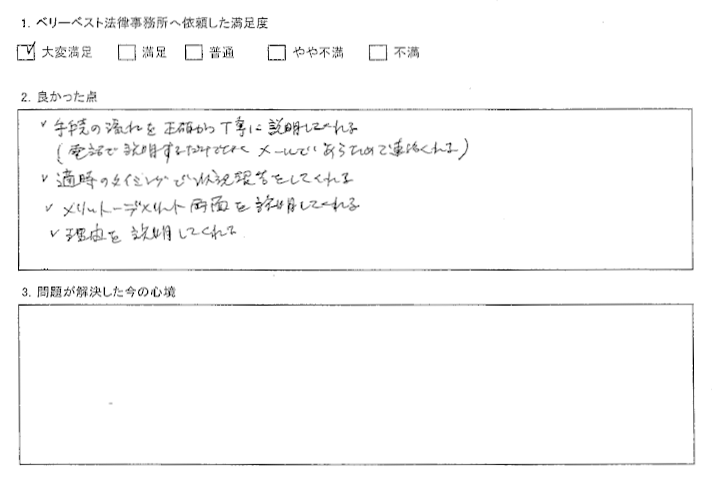 1. ベリーベスト法律事務所へ依頼した満足度
☑ 大変満足 □ 満足 □ 普通 □ やや不満 □ 不満
2. 良かった点
✓ 手続の流れを正確かつ丁寧に説明してくれる
(電話で説明するだけでなく メールでもあらためて連絡くれる)
✓ 適時のタイミングで状況報告をしてくれる
✓ メリット・デメリット両面を説明してくれる
✓ 理由を説明してくれる
3. 問題が解決した今の心境